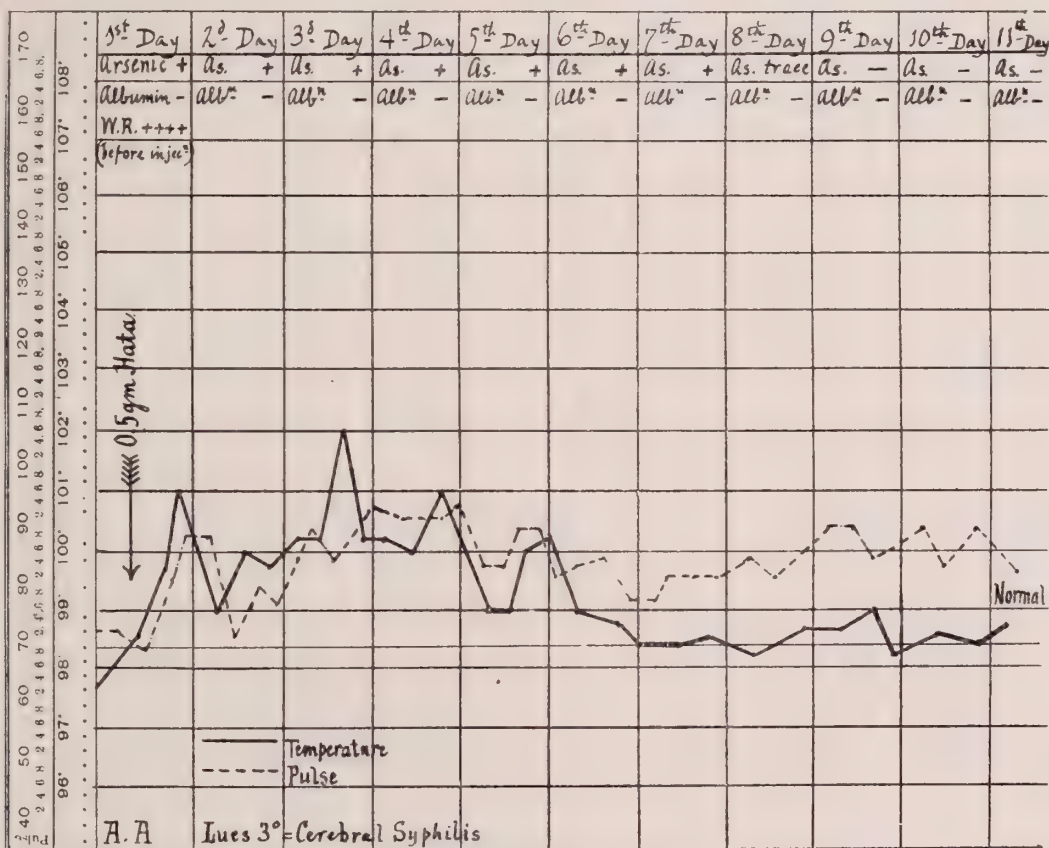 1st Day 2d Day 3d Day 4th Day 5th Day 6th Day 7th Day 8th Day 9th Day 10th Day 11th Day
Arsenic + As. + As. + As. + As. + As. + As. + As. trace As. – As. – As. –
Albumin – Albn – Albn – Albn – Albn – Albn – Albn – Albn – Albn – Albn – Albn –
W.R. ++++
(before injecn)
170
160
150
140
130
120
110
100
90
80
70
60
50
40
108°
107°
106°
105°
104°
103°
102°
101°
100°
99°
98°
97°
96°
0.5gm Hata
Normal
Temperature
Pulse
A.A Lues 3° = Cerebral Syphilis